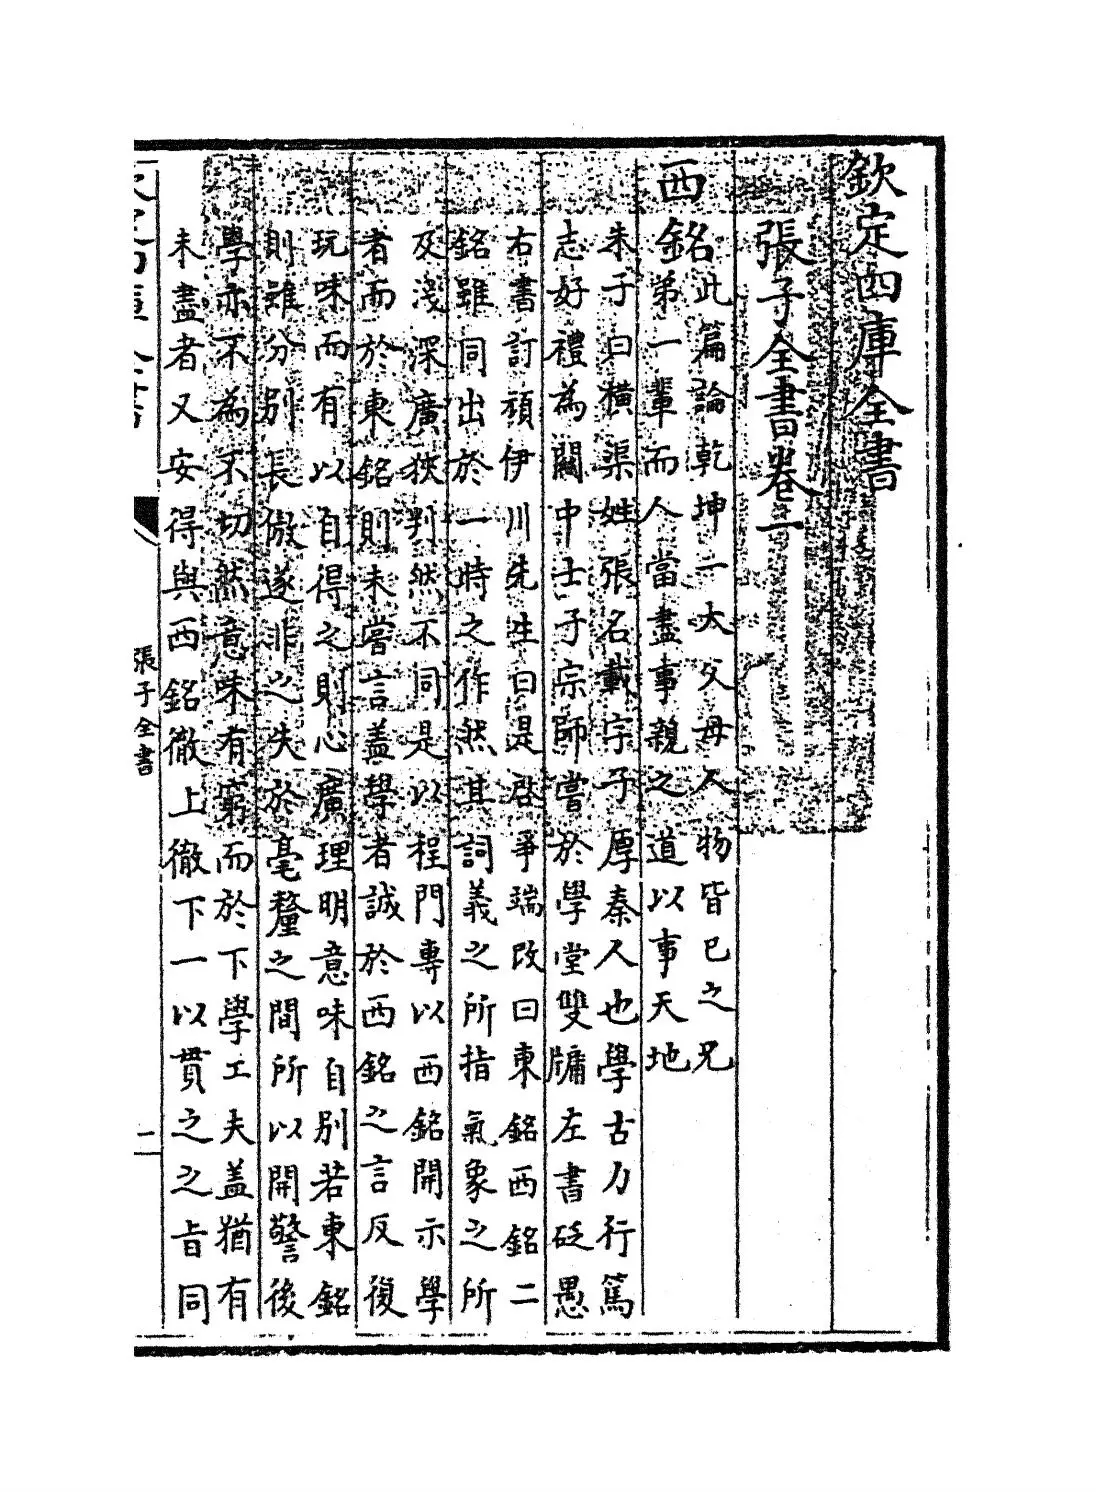 欽定四庫全書
張子全書卷一
西銘此篇論乾坤一大父母人物皆已之兄
弟一輩而人當盡事親之道以事天地
朱子曰橫渠姓張名載字子厚秦人也學古力行篤
志好禮為關中士子宗師嘗於學堂雙牖左書砭愚
右書訂頑伊川先生曰是啓爭端改曰東銘西銘二
銘雖同出於一時之作然其詞義之所指氣象之所
及淺深廣狹判然不同是以程門專以西銘開示學
者而於東銘則未嘗言盖學者誠於西銘之言反復
玩味而有以自得之則心廣理明意味自別若東銘
則雖分別長傲遂非之失於毫釐之間所以開警後
學亦不為不切然意味有窮而於下學工夫盖猶有
未盡者又安得與西銘徹上徹下一以貫之之旨同
張子全書
二